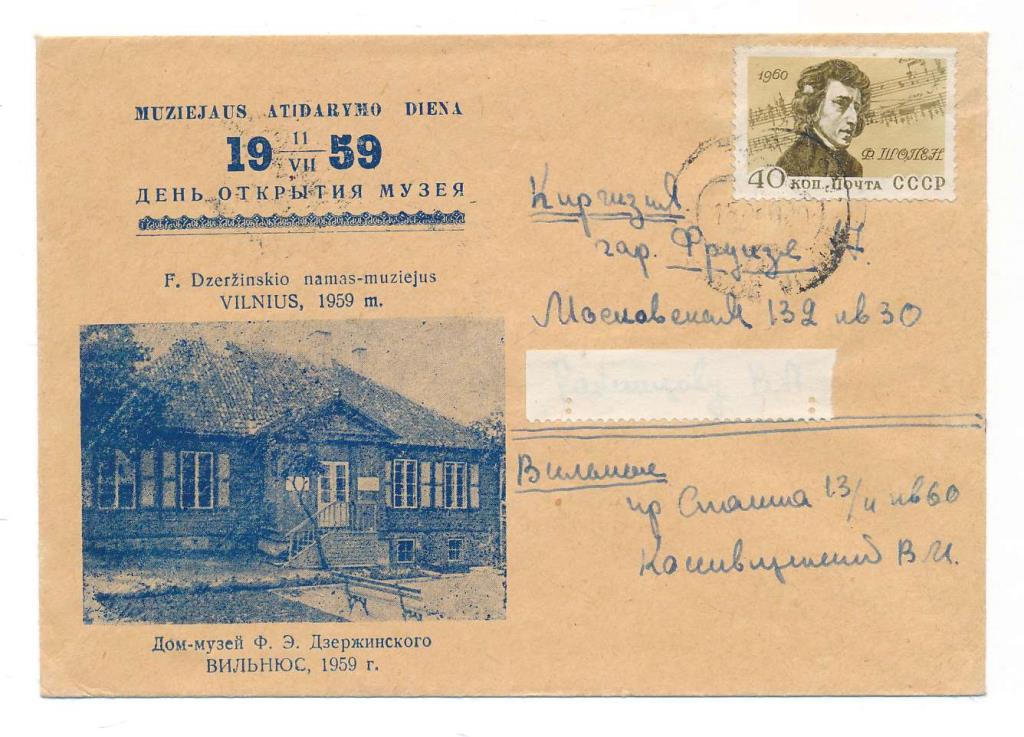 MUZIEJAUS ATIDARYMO DIENA
19 11/VII 59
ДЕНЬ ОТКРЫТИЯ МУЗЕЯ
F. Dzeržinskio namas-muziejus
VILNIUS, 1959 m.
Дом-музей Ф. Э. Дзержинского
ВИЛЬНЮС, 1959 г.
1960
Ф. ШОПЕН
40 КОП. ПОЧТА СССР
Киргизия
гор. Фрунзе 17.
Московская 132 кв 30
Вильнюс
пр Сталина 13/11 кв60
В. И.